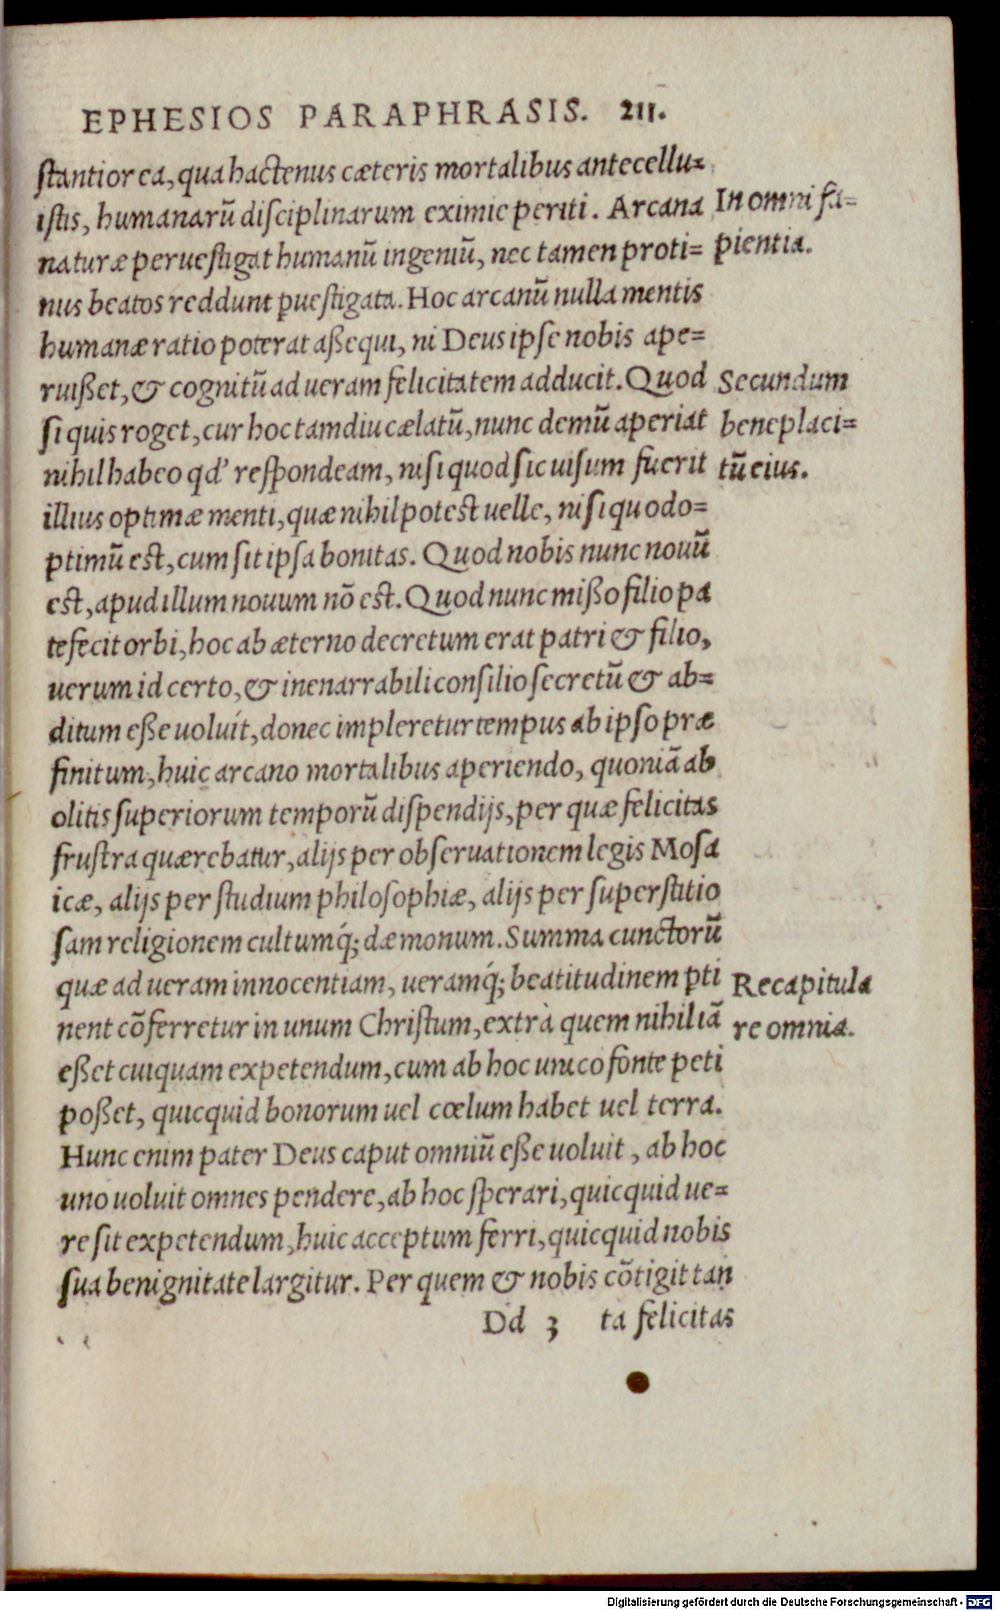 EPHESIOS PARAPHRASIS. 211.
ſtantior ea, qua hactenus cæteris mortalibus antecellu-
iſtis, humanarũ diſciplinarum eximie periti. Arcana
naturæ perueſtigat humanũ ingeniũ, nec tamen proti-
nus beatos reddunt pueſtigata. Hoc arcanũ nulla mentis
humanæ ratio poterat aßequi, ni Deus ipſe nobis ape-
ruißet, & cognitũ ad ueram felicitatem adducit. Quod
ſi quis roget, cur hoc tamdiu cælatũ, nunc demũ aperiat
nihil habeo qd' reſpondeam, niſi quod ſic uiſum fuerit
illius optimæ menti, quæ nihil poteſt uelle, niſi quod o-
ptimũ eſt, cum ſit ipſa bonitas. Quod nobis nunc nouũ
eſt, apud illum nouum nõ eſt. Quod nunc mißo filio pa
tefecit orbi, hoc ab æterno decretum erat patri & filio,
uerum id certo, & inenarrabili conſilio ſecretũ & ab-
ditum eße uoluit, donec impleretur tempus ab ipſo præ
finitum, huic arcano mortalibus aperiendo, quoniã ab
olitis ſuperiorum temporũ diſpendijs, per quæ felicitas
fruſtra quærebatur, alijs per obſeruationem legis Moſa
icæ, alijs per ſtudium philoſophiæ, alijs per ſuperſtitio
ſam religionem cultumq́; dæmonum. Summa cunctorũ
quæ ad ueram innocentiam, ueramq́; beatitudinem pti
nent cõferretur in unum Chriſtum, extrà quem nihil iã
eßet cuiquam expetendum, cum ab hoc unico fonte peti
poßet, quicquid bonorum uel cœlum habet uel terra.
Hunc enim pater Deus caput omniũ eße uoluit, ab hoc
uno uoluit omnes pendere, ab hoc ſperari, quicquid ue-
re ſit expetendum, huic acceptum ferri, quicquid nobis
ſua benignitate largitur. Per quem & nobis cõtigit tan
Dd 3 ta felicitas
In omni ſa-
pientia.
Secundum
beneplaci-
tũ eius.
Recapitula
re omnia.
Digitalisierung gefördert durch die Deutsche Forschungsgemeinschaft - DFG